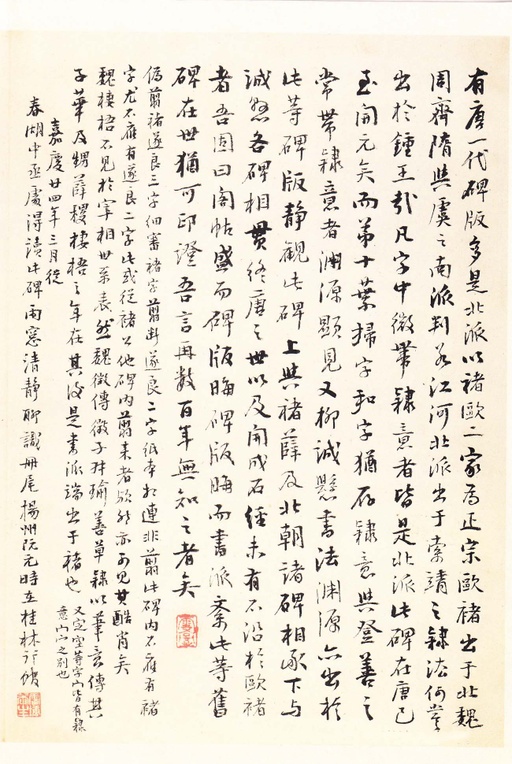 有唐一代碑版多是北派以褚歐二家為正宗歐褚出于北魏
周齊隋與虞之南派判若江河北派出于索靖之隸法何嘗
出於鍾王哉凡字中微帶隸意者皆是北派此碑在唐已
至開元矣而第十葉掃字和字猶存隸意與登善之
常帶隸意者淵源顯見又柳誠懸書法淵源亦出於
此等碑版靜觀此碑上與褚薛及北朝諸碑相承下與
誠懸各碑相貫終唐之世以及開成石經未有不沿於歐褚
者吾固曰閣帖盛而碑版晦碑版晦而書派紊此等舊
碑在世猶可印證吾言再數百年無知之者矣
偽翦褚遂良三字細審褚字翦斷遂良二字紙本相連非翦此碑內不應有褚
字尤不應有遂良二字此或從褚公他碑內翦來者歟然亦可見其酷肖矣
魏棲梧不見於宰相世系表然魏徵傳徵子叔瑜善草隸以筆意傳其
子華及甥薛稷棲梧之年在其後是書派端出于褚也
又定空等字宀皆有隸
意宀宀之別也
嘉慶廿四年三月從
春湖中丞處得讀此碑雨窗清靜聊識冊尾揚州阮元時在桂林行館